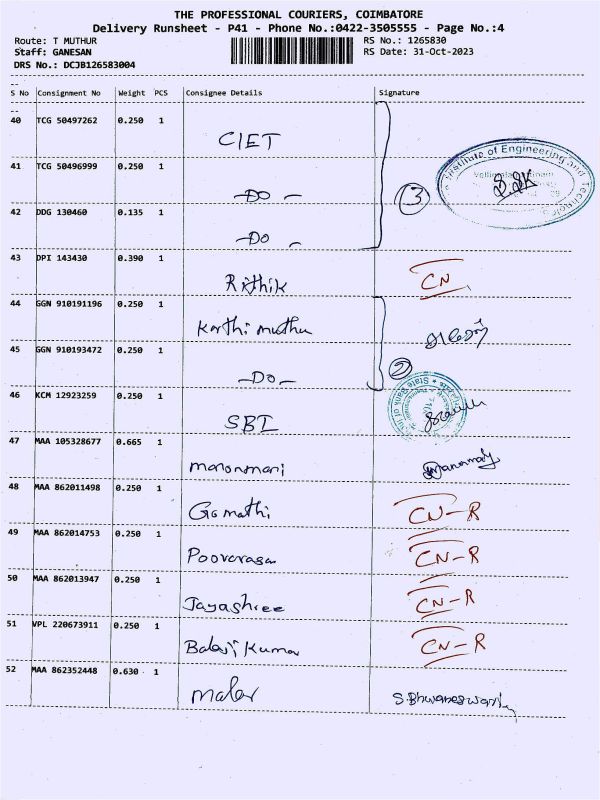 THE PROFESSIONAL COURIERS, COIMBATORE
Delivery Runsheet - P41 - Phone No.:0422-3505555 - Page No.:4
Route: T MUTHUR
RS No.: 1265830
Staff: GANESAN
RS Date: 31-Oct-2023
DRS No.: DCJB126583004
S No Consignment No Weight PCS Consignee Details Signature
40 TCG 50497262 0.250 1
CIET
41 TCG 50496999 0.250 1
-DO-
3
Institute of Engineering and
42 DDG 130460 0.135 1
-DO-
43 DPI 143430 0.390 1
Rithik CN
44 GGN 910191196 0.250 1
Karthi muthu
45 GGN 910193472 0.250 1
-DO-
2
46 KCM 12923259 0.250 1
SBI
State Bank of
47 MAA 105328677 0.665 1
manonmani
48 MAA 862011498 0.250 1
Gomathi CN-R
49 MAA 862014753 0.250 1
Poovarasan CN-R
50 MAA 862013947 0.250 1
Jayashree CN-R
51 VPL 220673911 0.250 1
Balaji Kumar CN-R
52 MAA 862352448 0.630 1
malar S.Bhuvaneswari